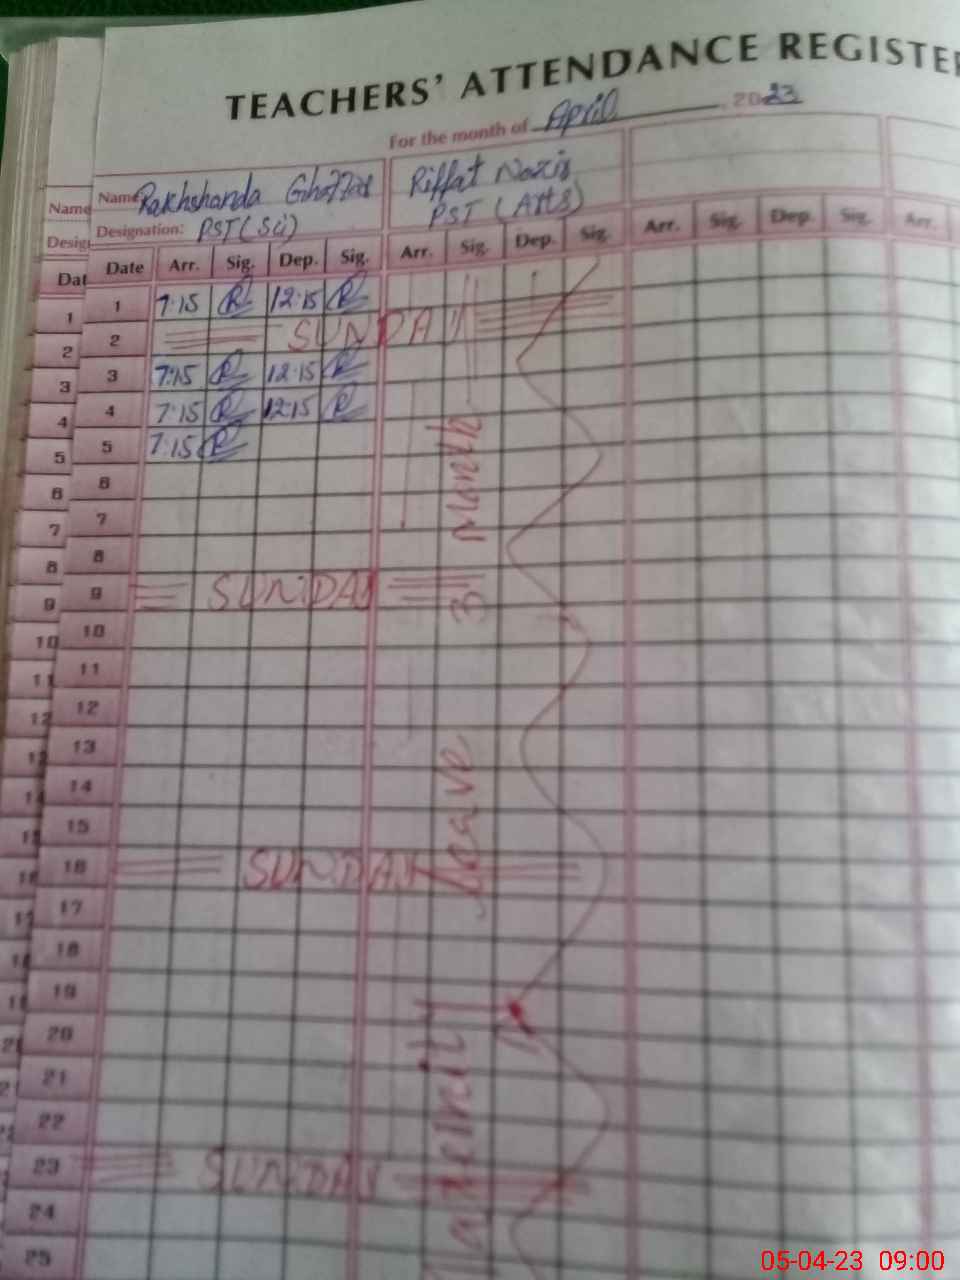 TEACHERS' ATTENDANCE REGISTER
For the month of April 2023
Name Rakhshanda Ghaffar Riffat Nazis
Designation: PST (Sci) PST (Arts)
Date Arr. Sig. Dep. Sig. Arr. Sig. Dep. Sig. Arr. Sig. Dep. Sig. Arr.
1 7:15 R 12:15 R
2 SUNDAY
3 7:15 R 12:15 R
4 7:15 R 12:15 R
5 7:15 R
6
7
8
9 SUNDAY
10
11
12
13
14
15
16 SUNDAY
17
18
19
20
21
22
23 SUNDAY
24
25
Leave 3 Month
Name
Dat
1
2
3
4
5
6
7
8
9
10
11
12
05-04-23 09:00